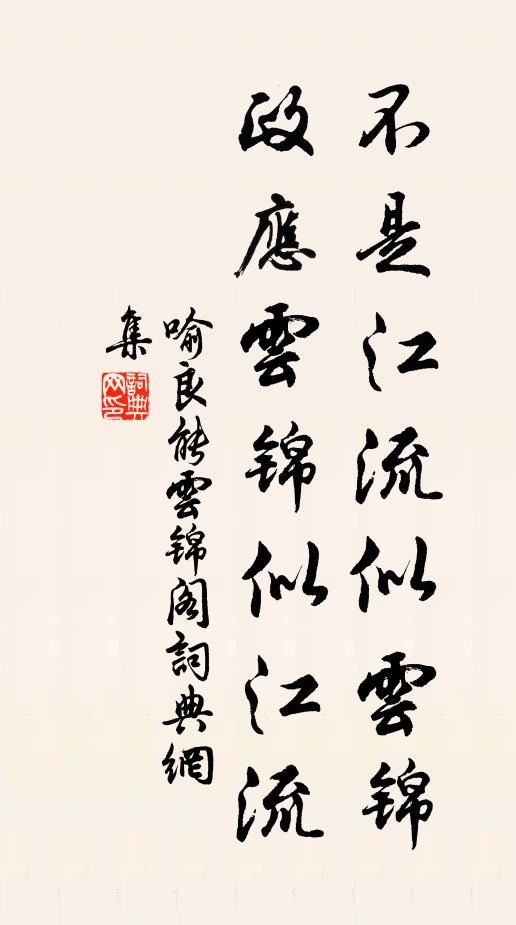 不是江流似雲錦
政應雲錦似江流
喻良能雲錦阁詞典網
集
詞典
网印